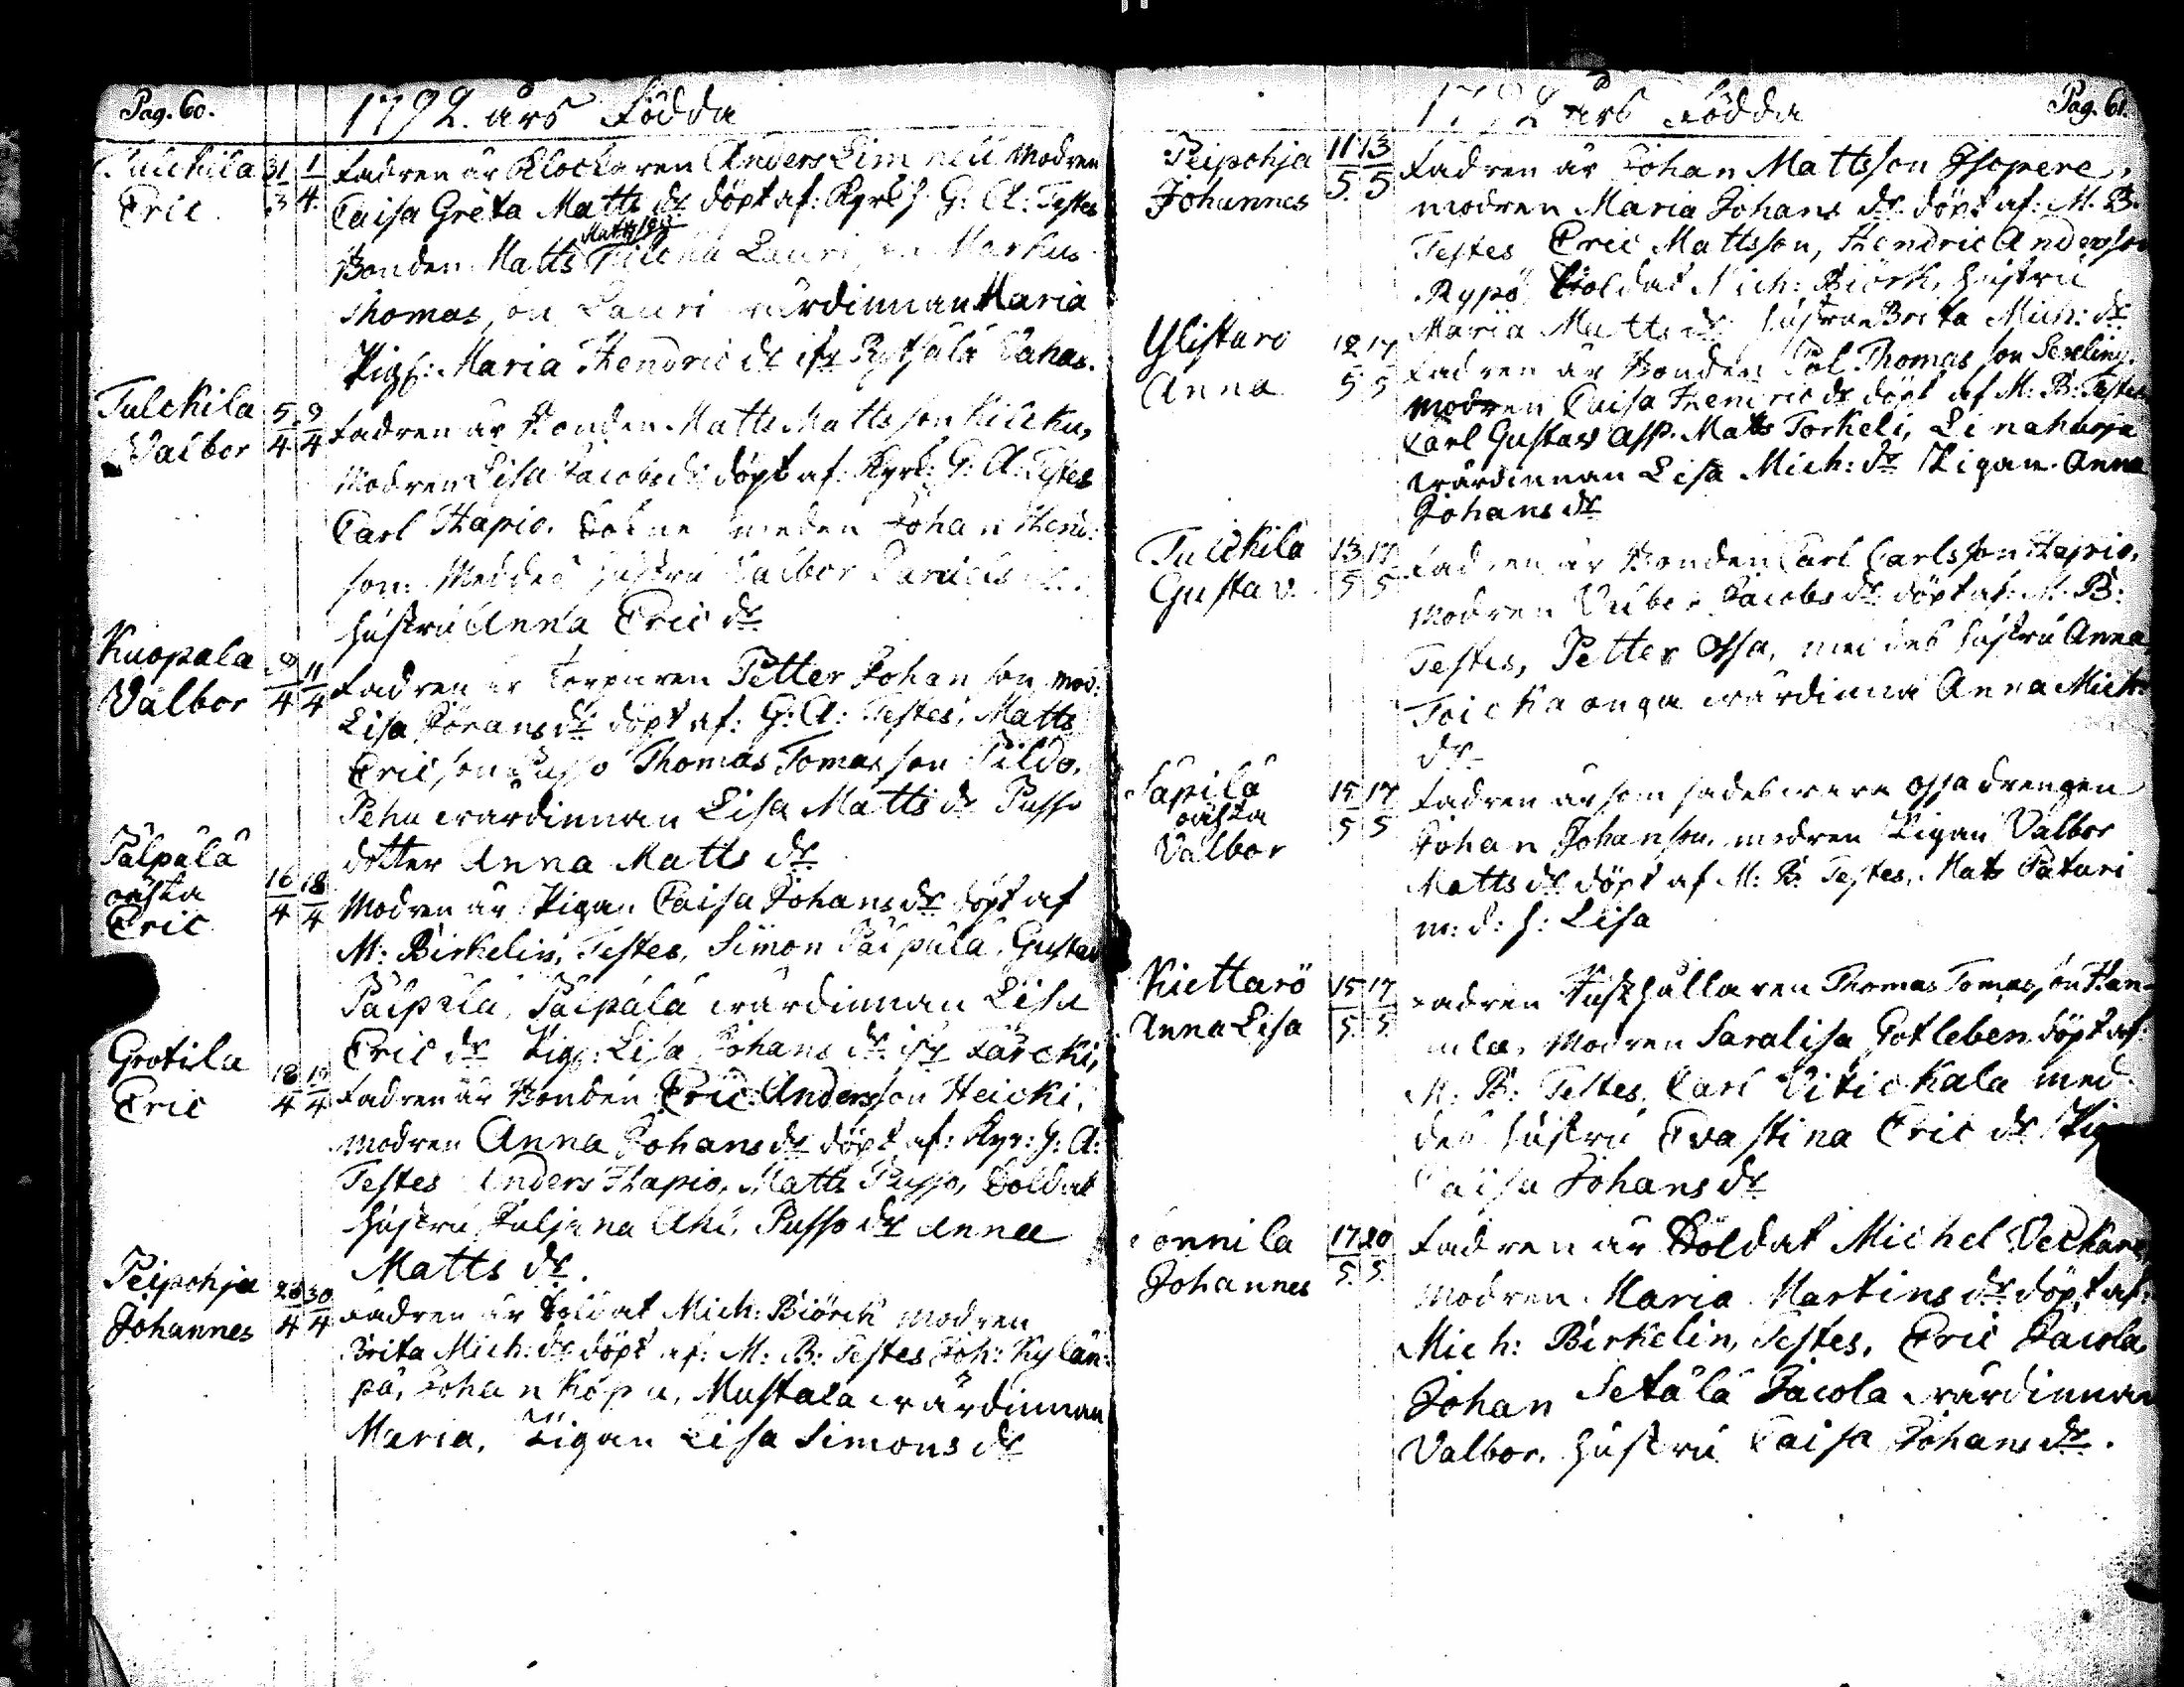 Pag. 60.
1792. års Födda
Tulckila 31/3 1/4 Fadren är Klockaren Anders Limnell Modren
Eric Caisa Greta Matts dr döpt af: Kyrkh. G: A: Testes
Mattsson
Bonden Matts Markus
Thomasson Lauri wärdinnan Maria
Pig: Maria Hendric dr
Tulckila 5/4 9/4 Fadren är Bonden Matts Mattsson Kilcku,
Valbor Modren Lisa Jacobs dr döpt af: Kyrk: G: A: Testes
Carl Hapio, Johan Hend:
son. Med des hustru Valbor
hustru Anna Eric dr
Kuopala 9/4 11/4 Fadren är Torparen Petter Johanson mod:
Valbor Lisa Jörans dr döpt af: G: A: Testes, Matts
Ericson Pusso Thomas Tomasson Pildo,
Pehu wärdinnan Lisa Matts dr Pusso
dotter Anna Matts dr
Pälpälä 16/4 18/4 Modren är Pigan Caisa Johans dr döpt af
oäkta
Eric M: Birkelin, Testes, Simon Pälpälä, Gustav
Pälpälä, Pälpälä wärdinnan Lisa
Eric dr Pig: Lisa Johans dr
Grotila 18/4 19/4 Fadren är Bonden Eric Andersson Heicki,
Eric modren Anna Johans dr döpt af: Kyr: G: A:
Testes Anders Hapio, Matts Pusso, Soldat
hustru Juljana Aki, Pusso dr Anna
Matts dr.
Peipohja 28/4 30/4 Fadren är Soldat Mich: Biörck modren
Johannes Brita Mich: dr döpt af: M: B: Testes Joh: Kylän:
pä, Johan Köpu, Mustala wärdinnan
Maria, Pigan Lisa Simons dr
1792 års Födda
Pag. 61.
Peipohja 11/5 13/5 Fadren är Johan Mattsson Isopere,
Johannes modren Maria Johans dr döpt af: M. B.
Testes Eric Mattsson, Hendric Andersson
Rypö, Soldat Mich: Biörk, hustru
Maria Matts dr hustru Brita Mich: dr
Ylistaro 12/5 17/5 Fadren är Bonden Pol. Thomasson Sexling
Anna modren Caisa Hendric dr döpt af M: B: Testes
Carl Gustav Asp. Matts Torkeli, Linaharja
wärdinnan Lisa Mich: dr Pigan Anna
Johans dr
Tulckila 13/5 17/5 Fadren är Bonden Carl Carlsson Hapio,
Gustav Modren Valbor Jacobs dr döpt af: M. B:
Testes, Petter Ossa, med des hustru Anna,
Toickaonga wärdinna Anna Mich:
dr
Säpilä 15/5 17/5 Fadren är som sades wara Ossa drengen
oäkta
Valbor Johan Johanson, modren Pigan Valbor
Matts dr döpt af M: B: Testes, Mats Paturi
m: d: h: Lisa
Kiettarö 15/5 17/5 Fadren Tushållaren Thomas Tomasson Han-
Anna Lisa Modren Saralisa Gotleben döpt af:
M: B: Testes. Carl Vitickala med
des hustru Evastina Eric dr Pig
Caisa Johans dr
Sonnila 17/5 20/5 Fadren är Soldat Michel Veckare
Johannes Modren Maria Martins dr döpt af:
Mich: Birkelin, Testes, Eric Jacola,
Johan Setälä Jacola wärdinnan
Valbor, hustru Caisa Johans dr.